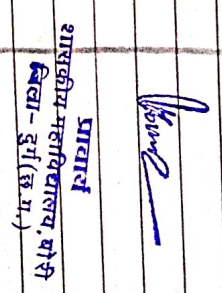 प्राचार्य
शासकीय महाविद्यालय, बोरी
जिला - दुर्ग (छ.ग.)